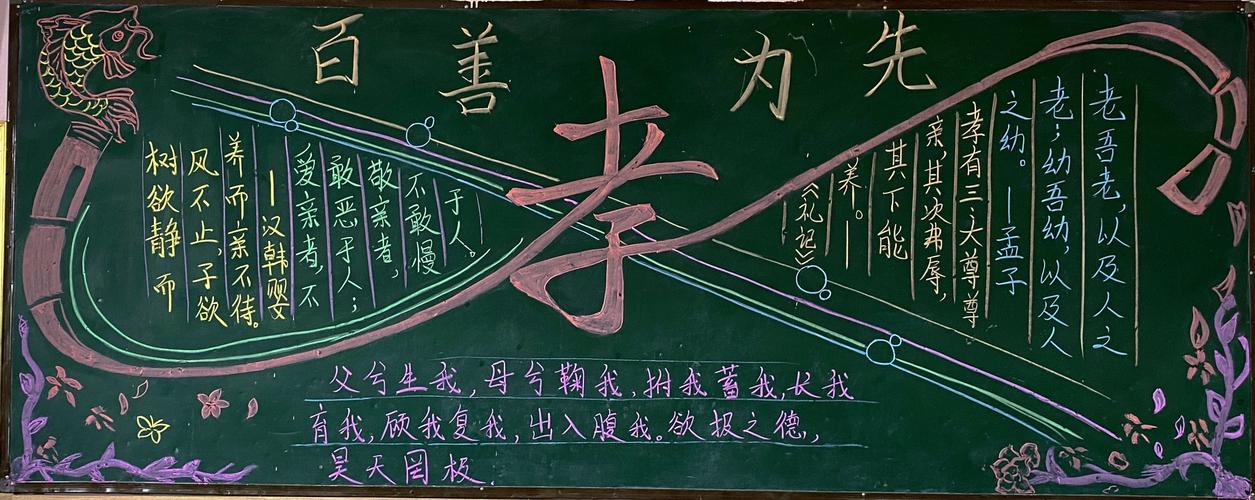 百善孝为先
树欲静而
风不止,子欲
养而亲不待。
—汉韩婴
爱亲者,不
敢恶于人;
敬亲者,
不敢慢
于人。
老吾老,以及人之
老;幼吾幼,以及人
之幼。—孟子
孝有三大尊尊
亲,其次弗辱,
其下能
养。—
《礼记》
父兮生我,母兮鞠我,拊我蓄我,长我
育我,顾我复我,出入腹我。欲报之德,
昊天罔极.